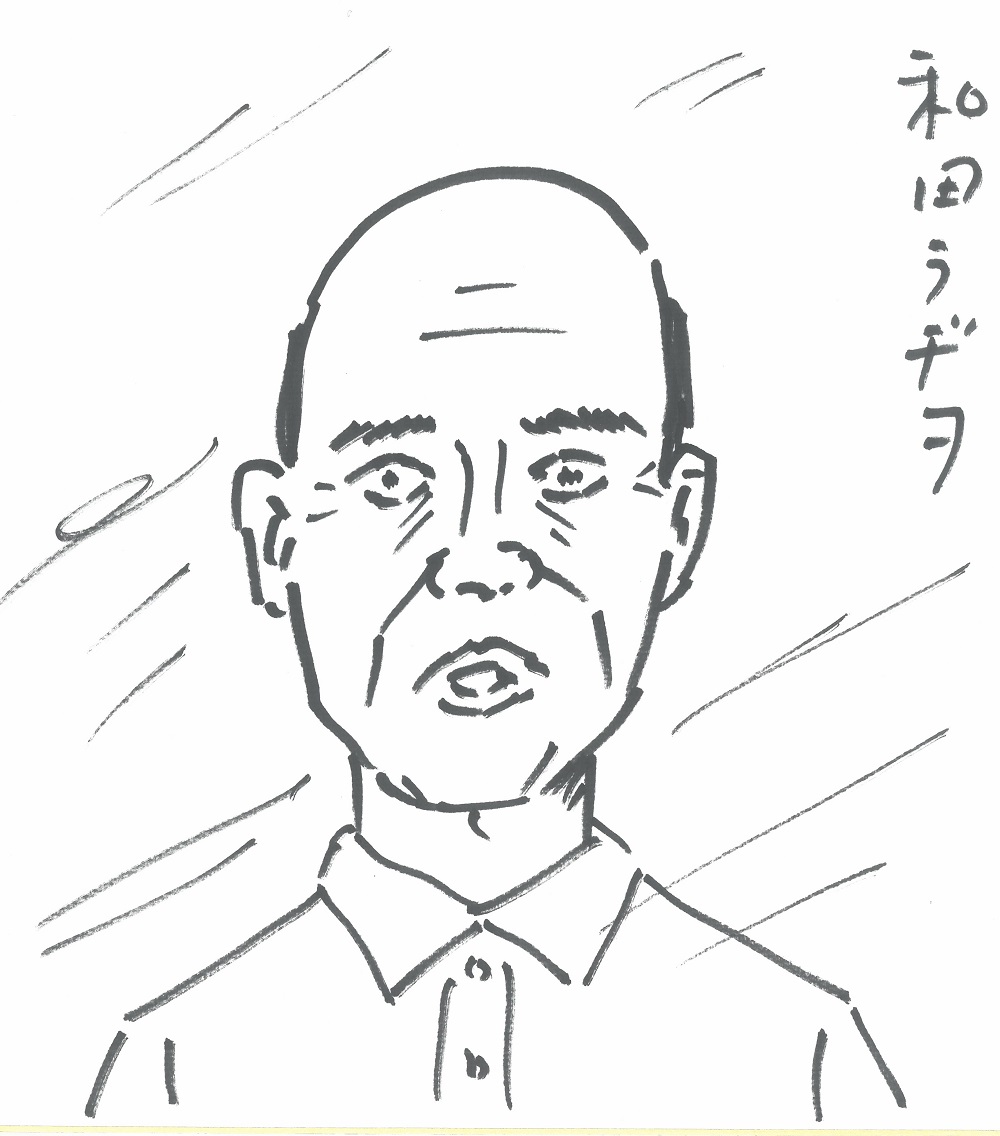 和田ラヂヲ